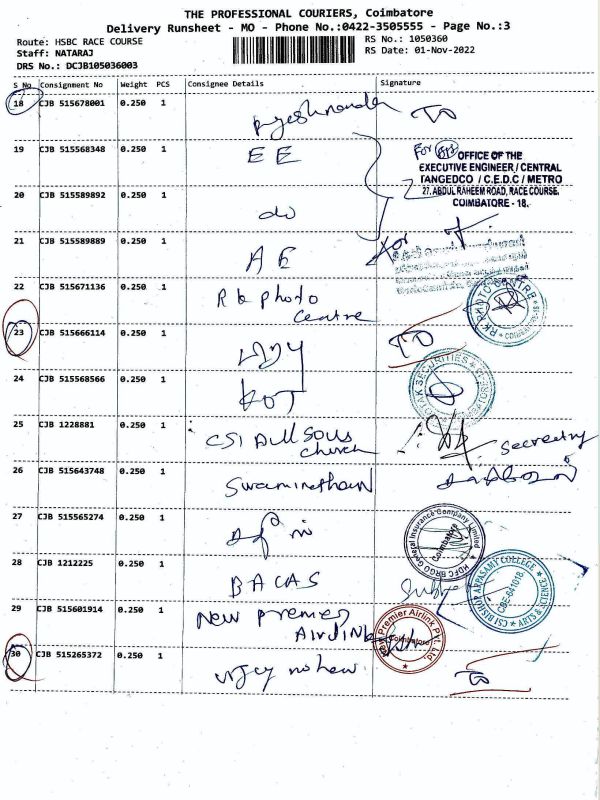 THE PROFESSIONAL COURIERS, Coimbatore
Delivery Runsheet - MO - Phone No.:0422-3505555 - Page No.:3
Route: HSBC RACE COURSE
RS No.: 1050360
Staff: NATARAJ
RS Date: 01-Nov-2022
DRS No.: DCJB105036003
S No Consignment No Weight PCS Consignee Details Signature
18 CJB 515678001 0.250 1
19 CJB 515568348 0.250 1 EE
For
OFFICE OF THE
EXECUTIVE ENGINEER / CENTRAL
TANGEDCO / C.E.D.C / METRO
27, ABDUL RAHEEM ROAD, RACE COURSE,
COIMBATORE - 18.
20 CJB 515589892 0.250 1 do
21 CJB 515589889 0.250 1 AE
For
22 CJB 515671136 0.250 1 Rk Photo
Centre
RK PHOTO CENTRE
23 CJB 515666114 0.250 1
24 CJB 515568566 0.250 1
KOTAK SECURITIES
25 CJB 1228881 0.250 1 CSI All Souls
church
Secretary
26 CJB 515643748 0.250 1 Swaminathan
27 CJB 515565274 0.250 1
HDFC ERGO General Insurance Company Limited
Coimbatore
28 CJB 1212225 0.250 1 BACAS
CSI BISHOP APPASAMY COLLEGE
ARTS & SCIENCE
CBE-641018
29 CJB 515601914 0.250 1 New Premier
Airlink
Premier Airlink Pvt. Ltd.
Coimbatore
30 CJB 515265372 0.250 1